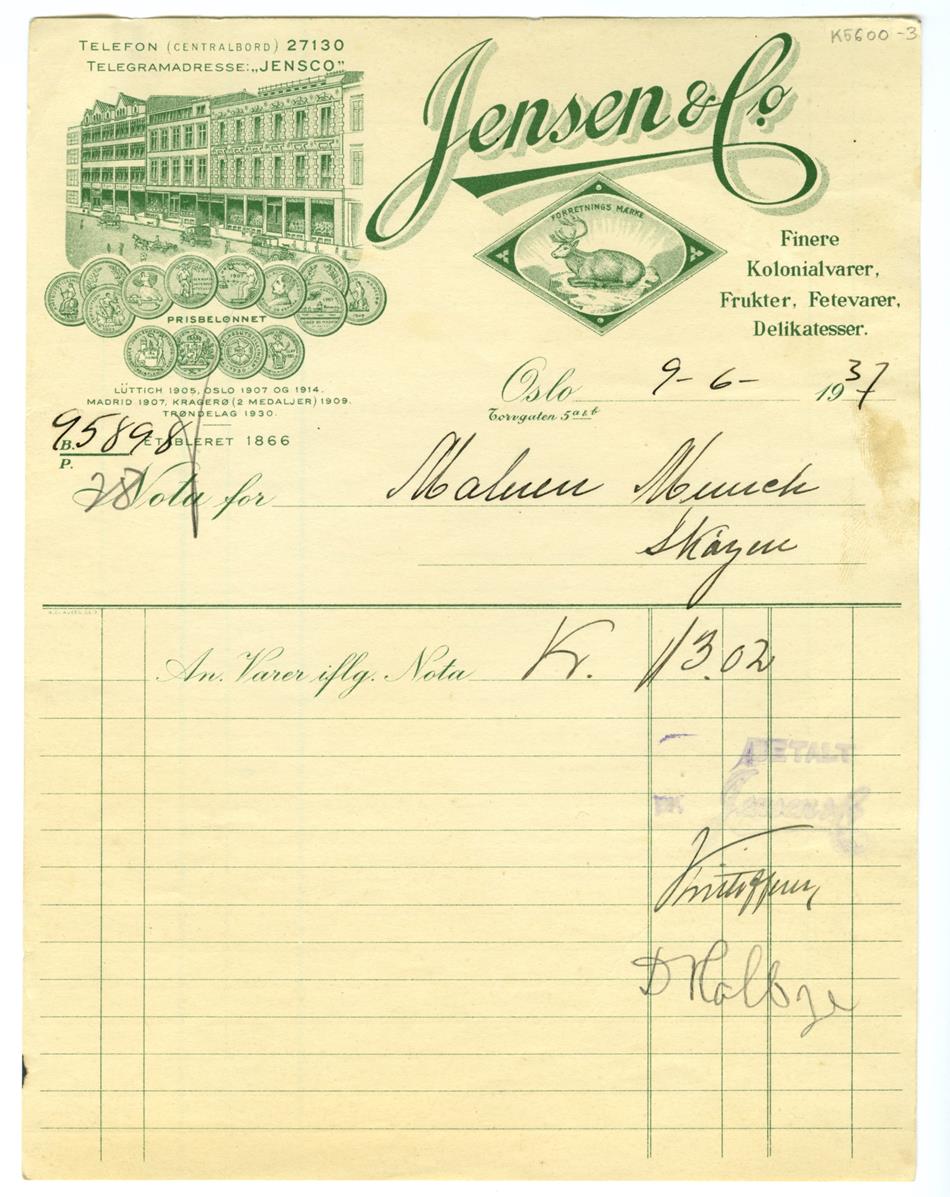 K5600-3
TELEFON (CENTRALBORD) 27130
TELEGRAMADRESSE: „JENSCO"
Jensen & Co.
FORRETNINGS MÆRKE
Finere
Kolonialvarer,
Frukter, Fetevarer,
Delikatesser.
PRISBELØNNET
LÜTTICH 1905, OSLO 1907 OG 1914.
MADRID 1907, KRAGERØ (2 MEDALJER) 1909.
TRØNDELAG 1930.
Oslo 9-6- 1937
Torvgaten 5 a & b
B. 95898 ETABLERET 1866
P.
28 Nota for Maleren Munch
Skøyen
An. Varer iflg. Nota Kr. 113.02
BETALT
Jensen & Co